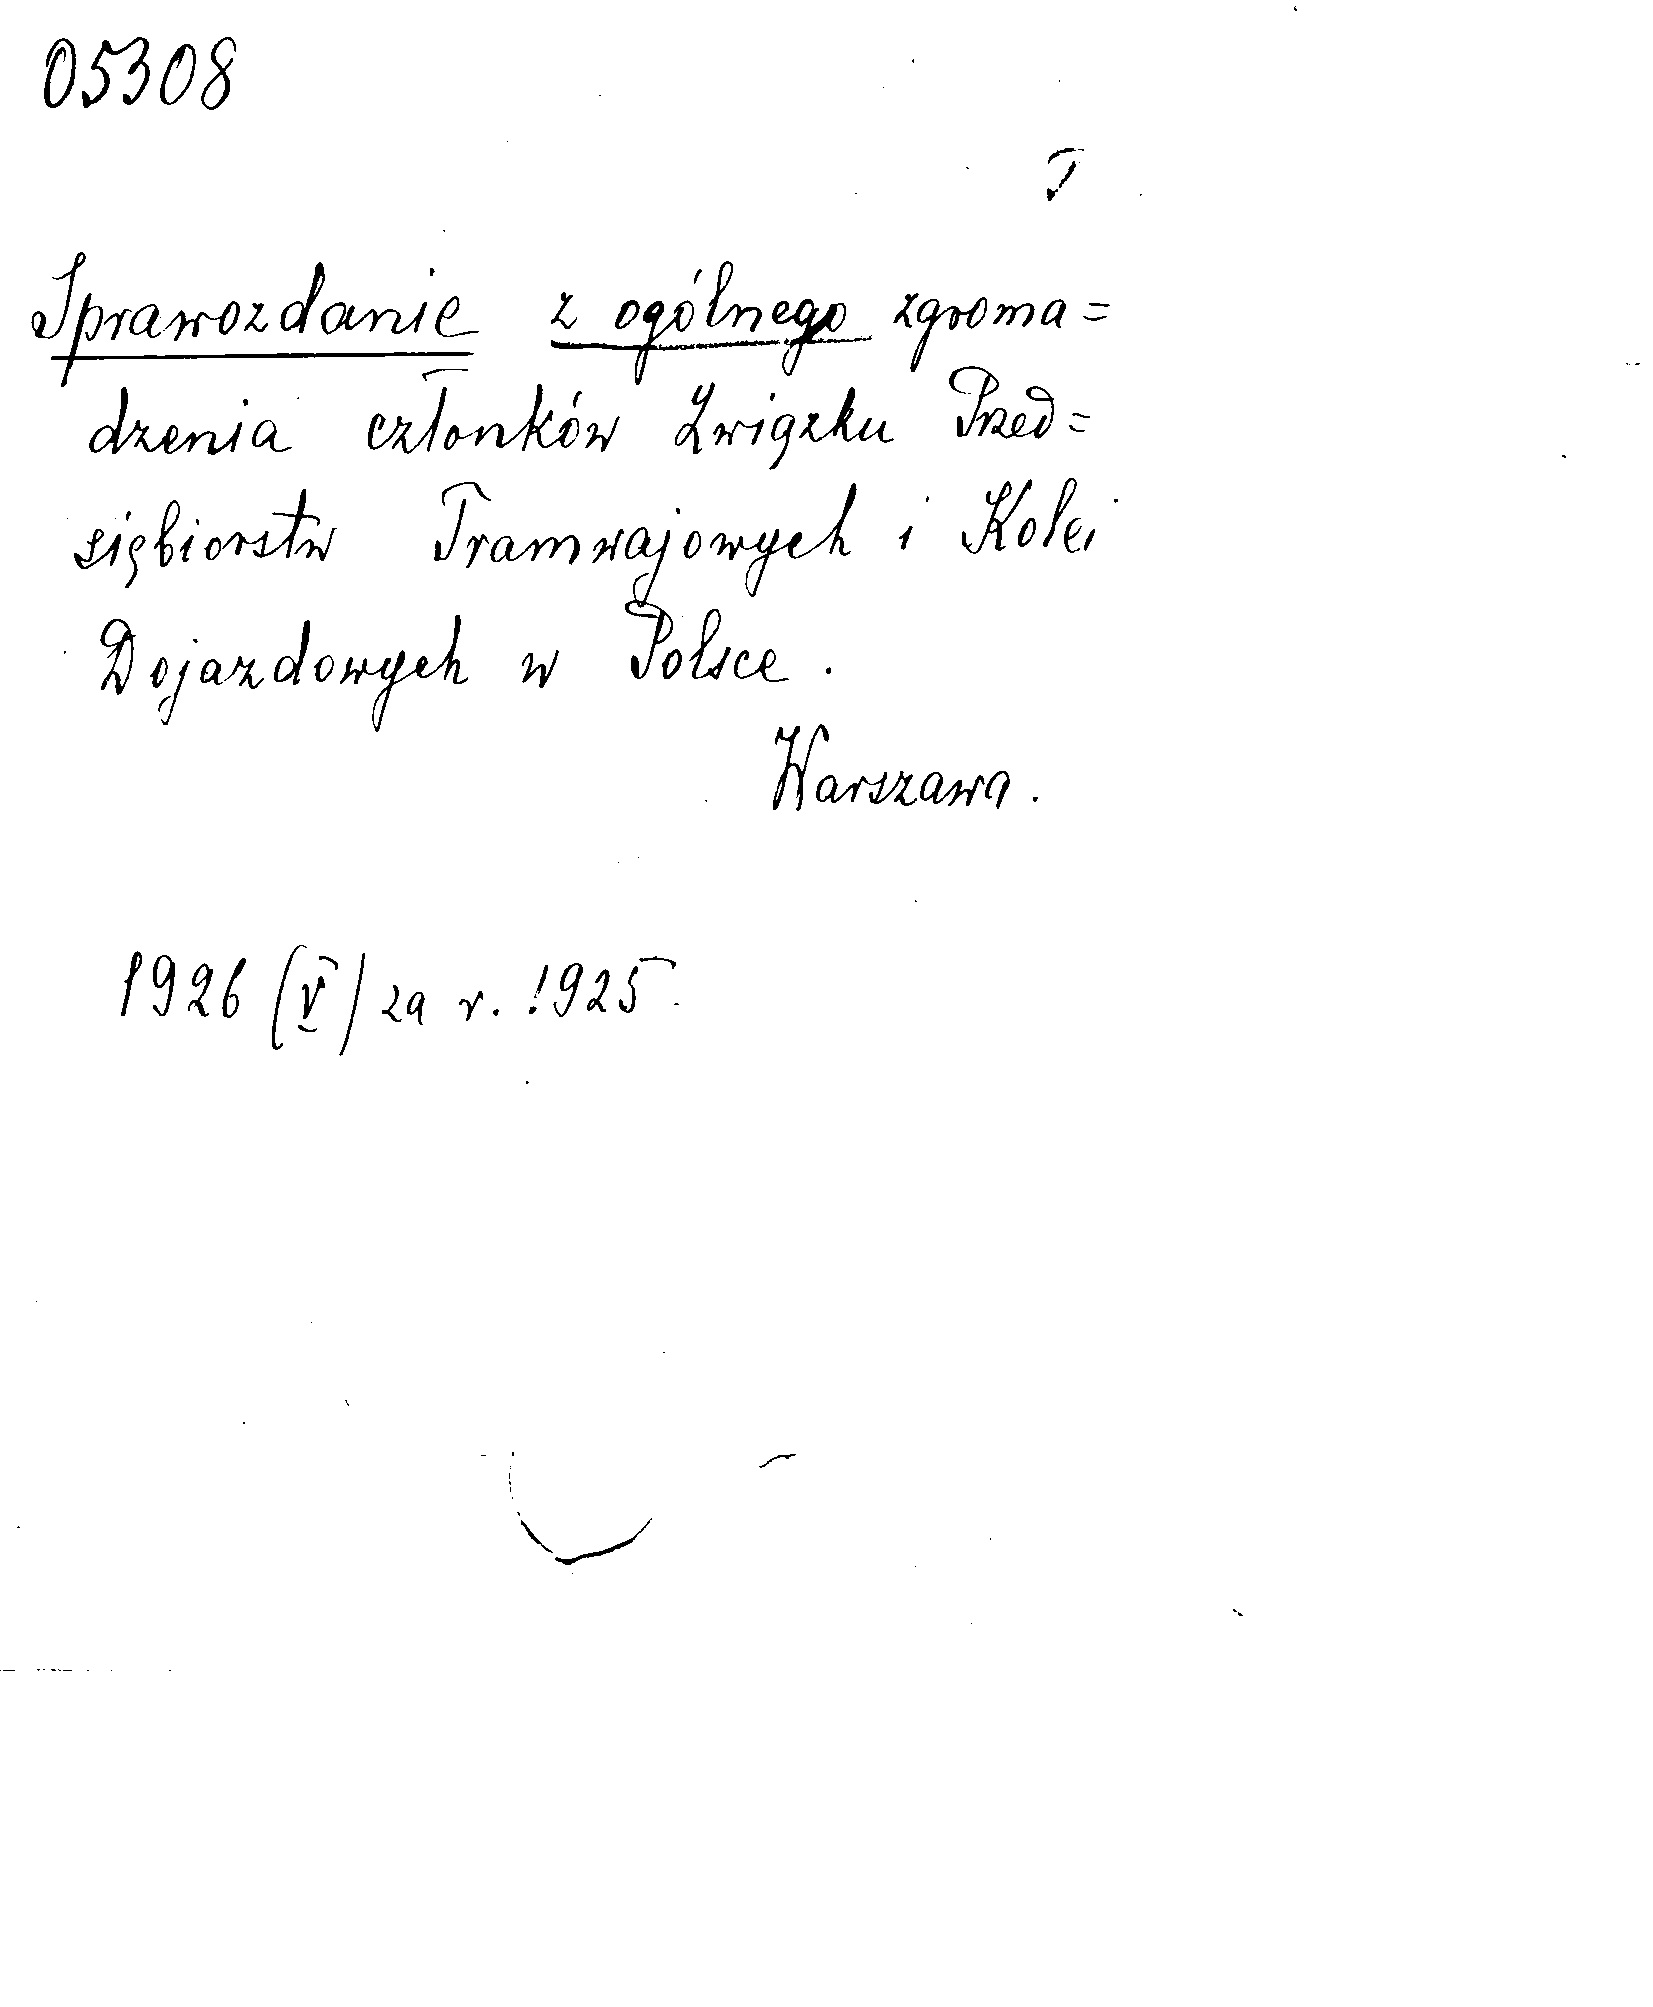 05308
T
Sprawozdanie z ogólnego zgroma=
dzenia członków Związku Przed=
siębiorstw Tramwajowych i Kolei
Dojazdowych w Polsce.
Warszawa.
1926 (V) za r. 1925